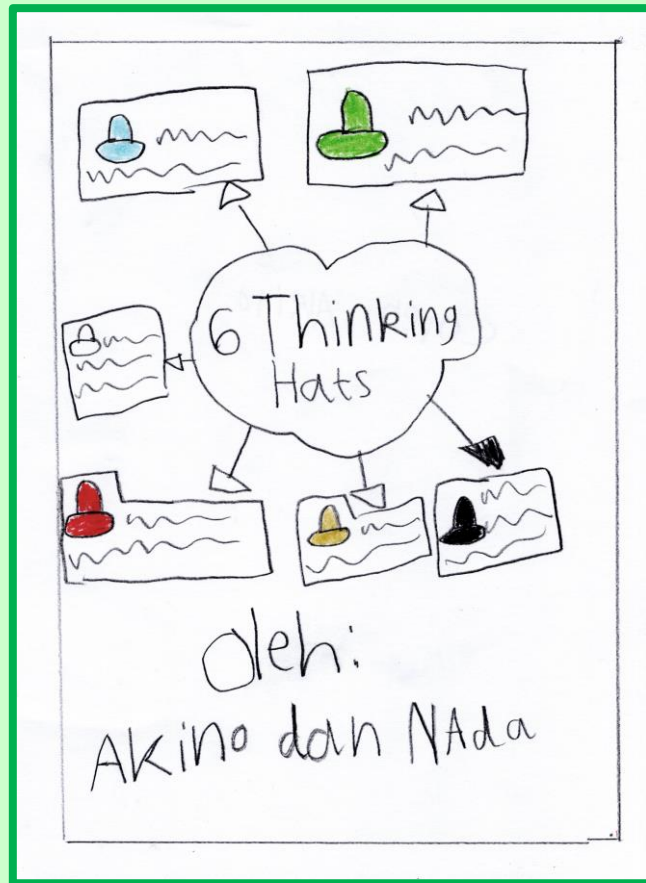 6 Thinking
Hats
Oleh:
Akino dan NAda